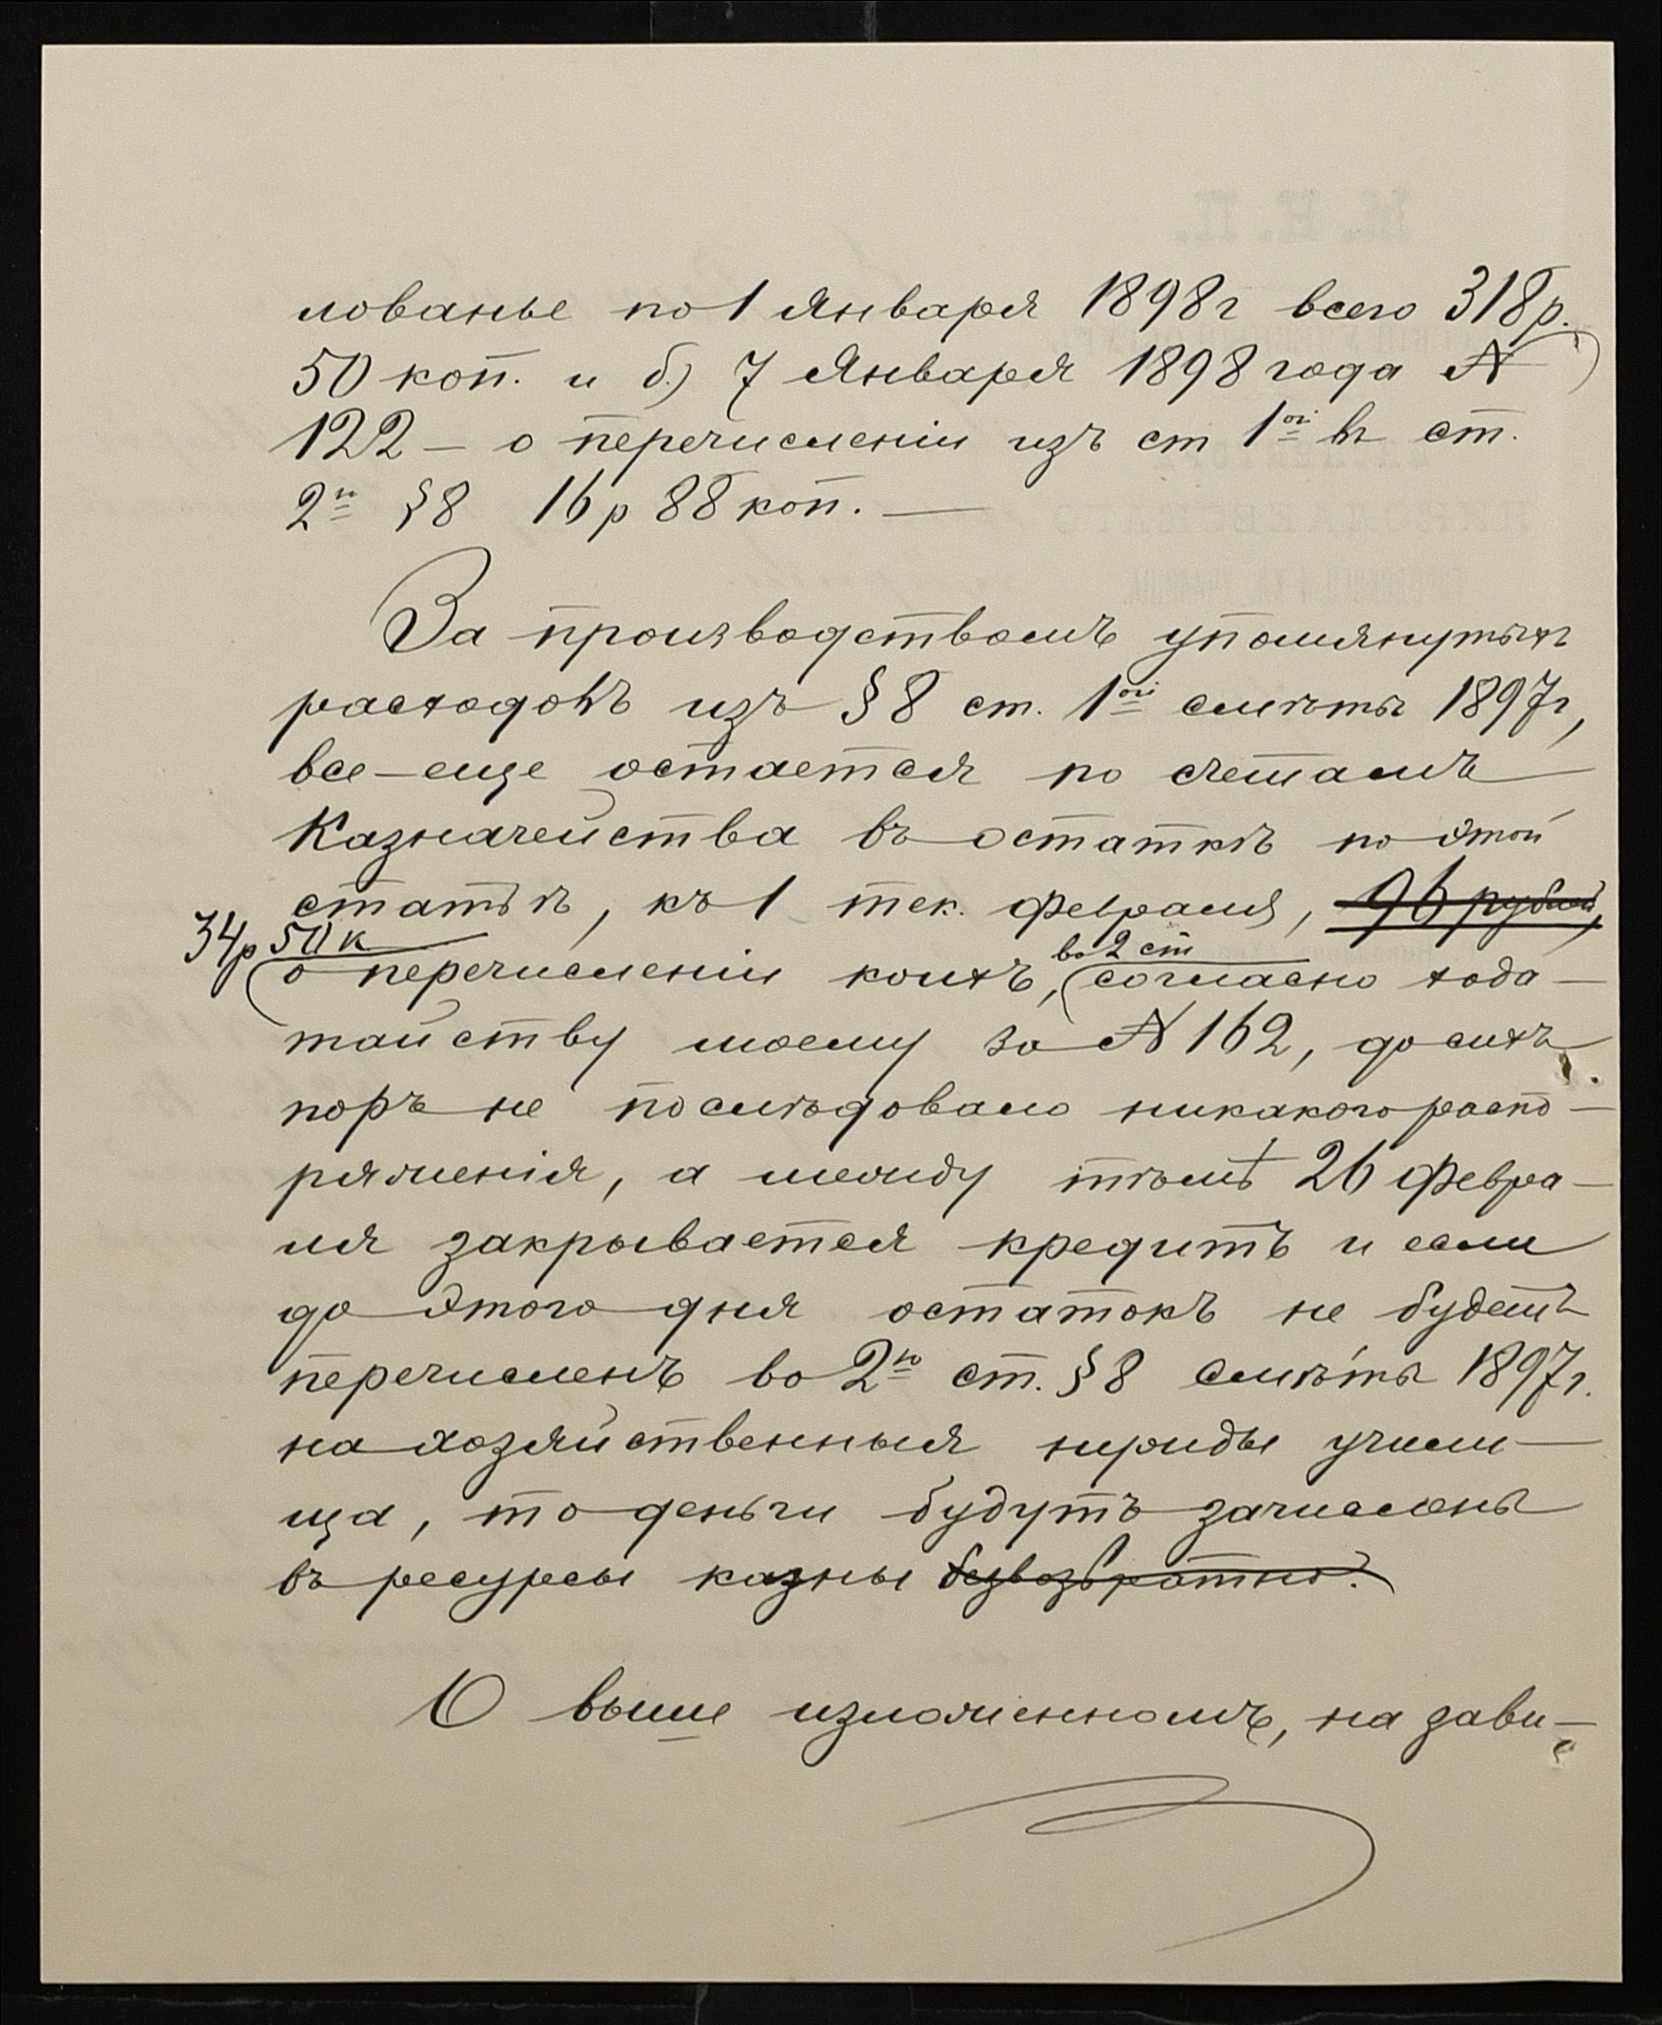 лованье по 1 Января 1898 г всего 318 р.
50 коп. и б.) 7 Января 1898 года №
122 — о перечисленіи изъ ст 1ой въ ст.
2ю § 8 16 р 88 коп. —
За производствомъ упомянутыхъ
расходовъ изъ § 8 ст. 1ой смѣты 1897 г,
все-еще остается по счетамъ
Казначейства въ остаткѣ по этой
статьѣ, къ 1 тек. Февраля, 96 рублей,
34 р 50 к
во 2 ст
о перечисленіи коихъ, согласно хода-
тайству моему за № 162, до сихъ
поръ не послѣдовало никакого распо-
ряженія, а между тѣмъ 26 Февра-
ля закрывается кредитъ и если
до этого дня остатокъ не будетъ
перечисленъ во 2ю ст. § 8 смѣты 1897 г.
на хозяйственныя нужды учили-
ща, то деньги будутъ зачислены
въ ресурсы казны безвозвратно.
О выше изложенномъ, на зави-